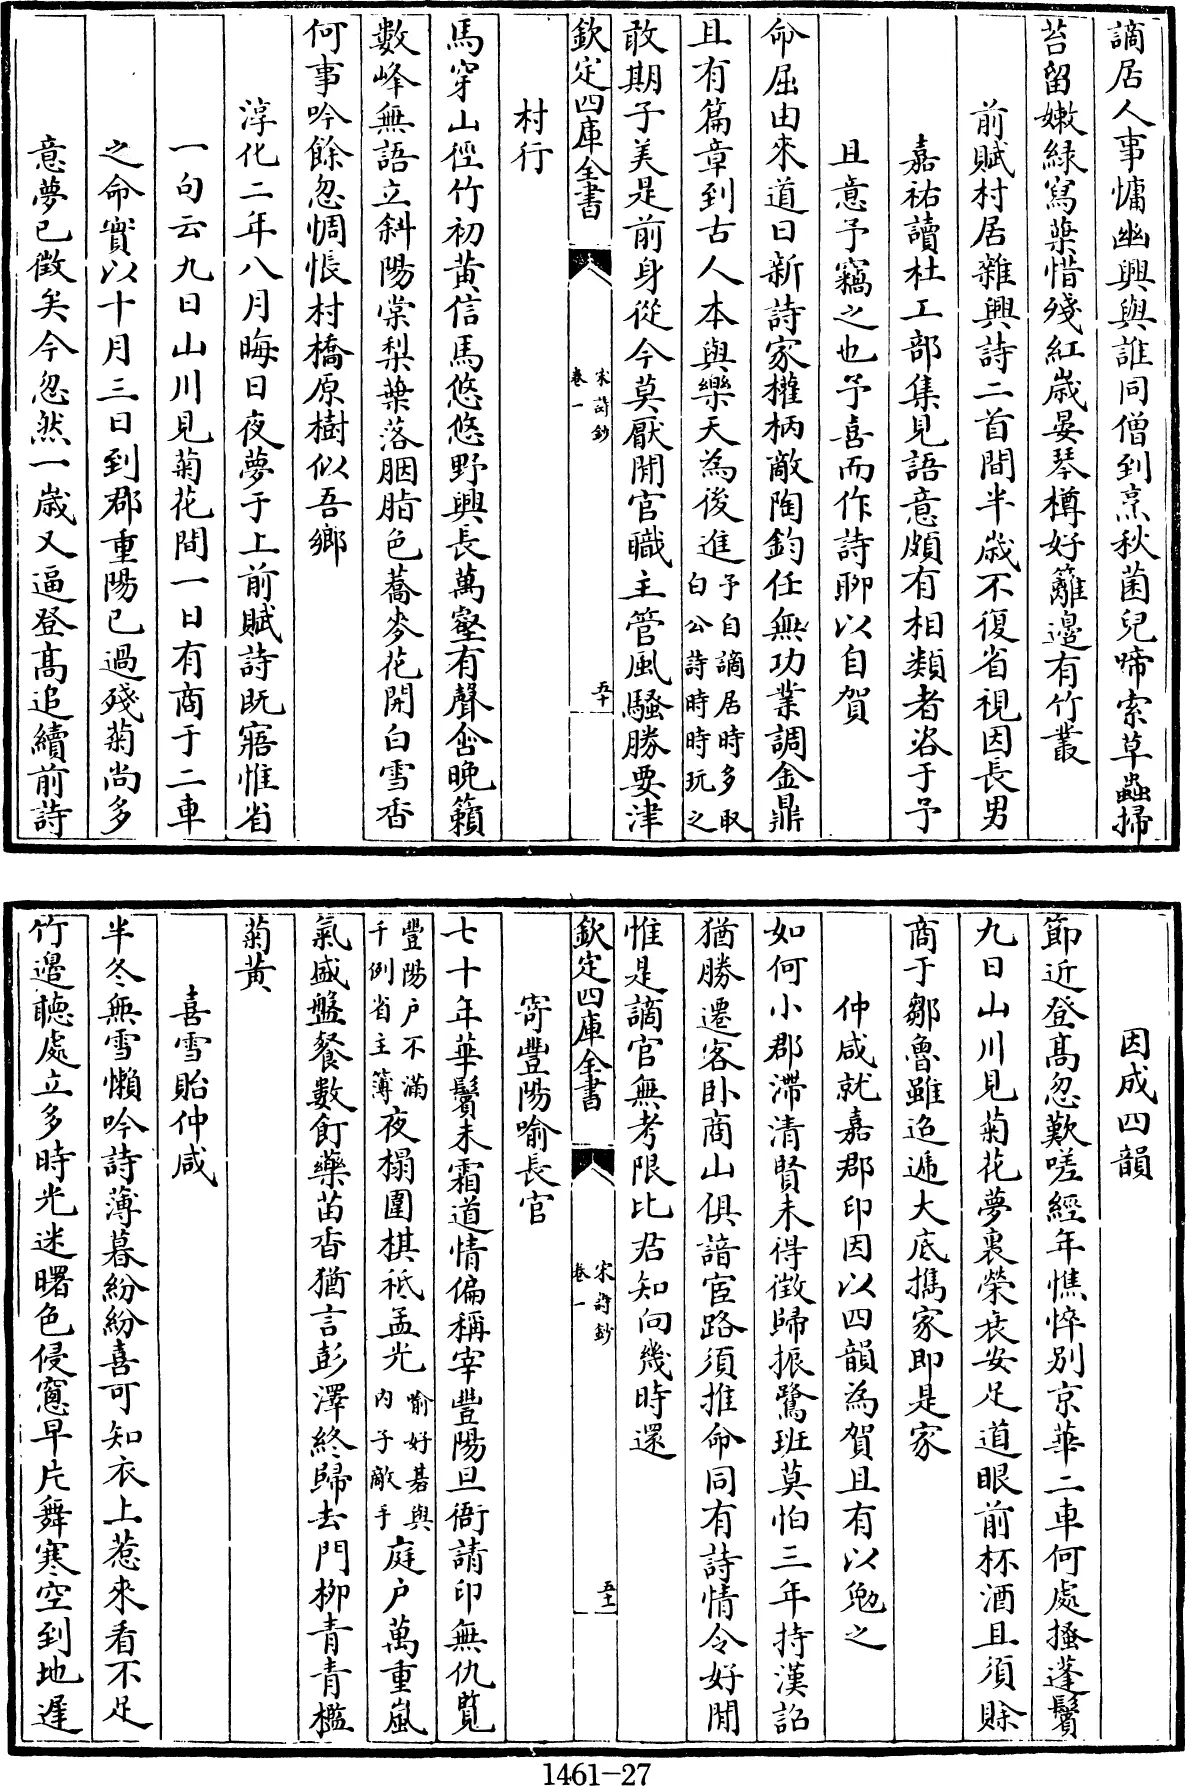 謫居人事慵幽興與誰同僧到烹秋菌兒啼索草蟲掃
苔留嫩綠寫葉惜殘紅歲晏琴樽好籬邉有竹叢
前賦村居雜興詩二首間半歲不復省視因長男
嘉祐讀杜工部集見語意頗有相類者咨于予
且意予竊之也予喜而作詩聊以自賀
命屈由來道日新詩家權柄敵陶鈞任無功業調金鼎
且有篇章到古人本與樂天為後進予自謫居時多取白公詩時時玩之
敢期子美是前身從今莫厭閒官職主管風騷勝要津
欽定四庫全書 宋詩鈔 卷一 五十
村行
馬穿山徑竹初黄信馬悠悠野興長萬壑有聲含晚籟
數峰無語立斜陽棠梨葉落胭脂色蕎麥花開白雪香
何事吟餘忽惆悵村橋原樹似吾鄉
淳化二年八月晦日夜夢于上前賦詩既寤惟省
一句云九日山川見菊花間一日有商于二車
之命實以十月三日到郡重陽已過殘菊尚多
意夢已徵矣今忽然一歲又逼登髙追續前詩
因成四韻
節近登髙忽歎嗟經年憔悴别京華二車何處搔蓬鬢
九日山川見菊花夢裏榮衰安足道眼前杯酒且須賖
商于鄒魯雖迢遞大底擕家即是家
仲咸就嘉郡印因以四韻為賀且有以勉之
如何小郡滯清賢未得徵歸振鷺班莫怕三年持漢詔
猶勝遷客卧商山俱諳宦路須推命同有詩情令好閒
惟是謫官無考限比君知向幾時還
欽定四庫全書 宋詩鈔 卷一 五十一
寄豐陽喻長官
七十年華鬢未霜道情偏稱宰豐陽旦衙請印無仇覽
豐陽户不滿千例省主簿夜榻圍棋祗孟光喻好碁與内子敵手庭户萬重嵐
氣盛盤餐數飣藥苗香猶言彭澤終歸去門柳青青檻
菊黄
喜雪貽仲咸
半冬無雪懶吟詩薄暮紛紛喜可知衣上惹來看不足
竹邉聽處立多時光迷曙色侵窻早片舞寒空到地遲
1461-27